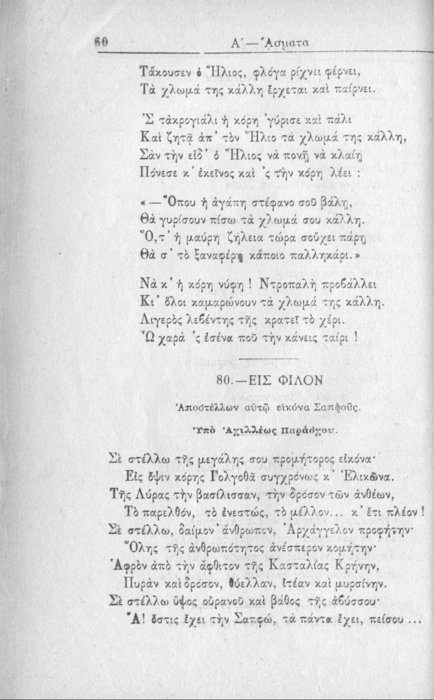 60 Α΄ — Ἄσματα
Τἄκουσεν ὁ Ἥλιος, φλόγα ρίχνει φέρνει,
Τὰ χλωμά της κάλλη ἔρχεται καὶ παίρνει.
Ὁ 'Σ τἀκρογιάλι ἡ κόρη 'γύρισε καὶ πάλι
Καὶ ζητᾷ ἀπ' τὸν Ἥλιο τὰ χλωμά της κάλλη,
Σὰν τὴν εἶδ' ὁ Ἥλιος νὰ πονῇ νὰ κλαίῃ
Πόνεσε κ' ἐκεῖνος καὶ 'ς τὴν κόρη λέει :
« — Ὅπου ἡ ἀγάπη στέφανο σοῦ βάλῃ,
Θὰ γυρίσουν πίσω τὰ χλωμά σου κάλλη.
Ὅ,τ' ἡ μαύρη ζήλεια τώρα σοὔχει πάρῃ
Θὰ σ' τὸ ξαναφέρῃ κᾄποιο παλληκάρι.»
Νὰ κ' ἡ κόρη νύφη ! Ντροπαλὴ προβάλλει
Κι' ὅλοι καμαρώνουν τὰ χλωμά της κάλλη.
Λιγερὸς λεβέντης τῆς κρατεῖ τὸ χέρι.
Ὦ χαρὰ 'ς ἐσένα ποῦ τὴν κάνεις ταίρι !
80.—ΕΙΣ ΦΙΛΟΝ
Ἀποστέλλων αὐτῷ εἰκόνα Σαπφοῦς.
Ὑπὸ Ἀχιλλέως Παράσχου.
Σὲ στέλλω τῆς μεγάλης σου προμήτορος εἰκόνα·
Εἰς ὄψιν κόρης Γολγοθᾶ συγχρόνως κ' Ἑλικῶνα.
Τῆς Λύρας τὴν βασίλισσαν, τὴν δρόσον τῶν ἀνθέων,
Τὸ παρελθόν, τὸ ἐνεστώς, τὸ μέλλον... κ' ἔτι πλέον !
Σὲ στέλλω, δαίμον' ἄνθρωπον, Ἀρχάγγελον προφήτην·
Ὅλης τῆς ἀνθρωπότητος ἀνέσπερον κομήτην·
Ἀφρὸν ἀπὸ τὴν ἄφθιτον τῆς Κασταλίας Κρήνην,
Πυρὰν καὶ δρόσον, θύελλαν, ἰτέαν καὶ μυρσίνην.
Σὲ στέλλω ὕψος οὐρανοῦ καὶ βάθος τῆς ἀβύσσου·
Ἆ! ὅστις ἔχει τὴν Σαπφώ, τὰ πάντα ἔχει, πείσου ...